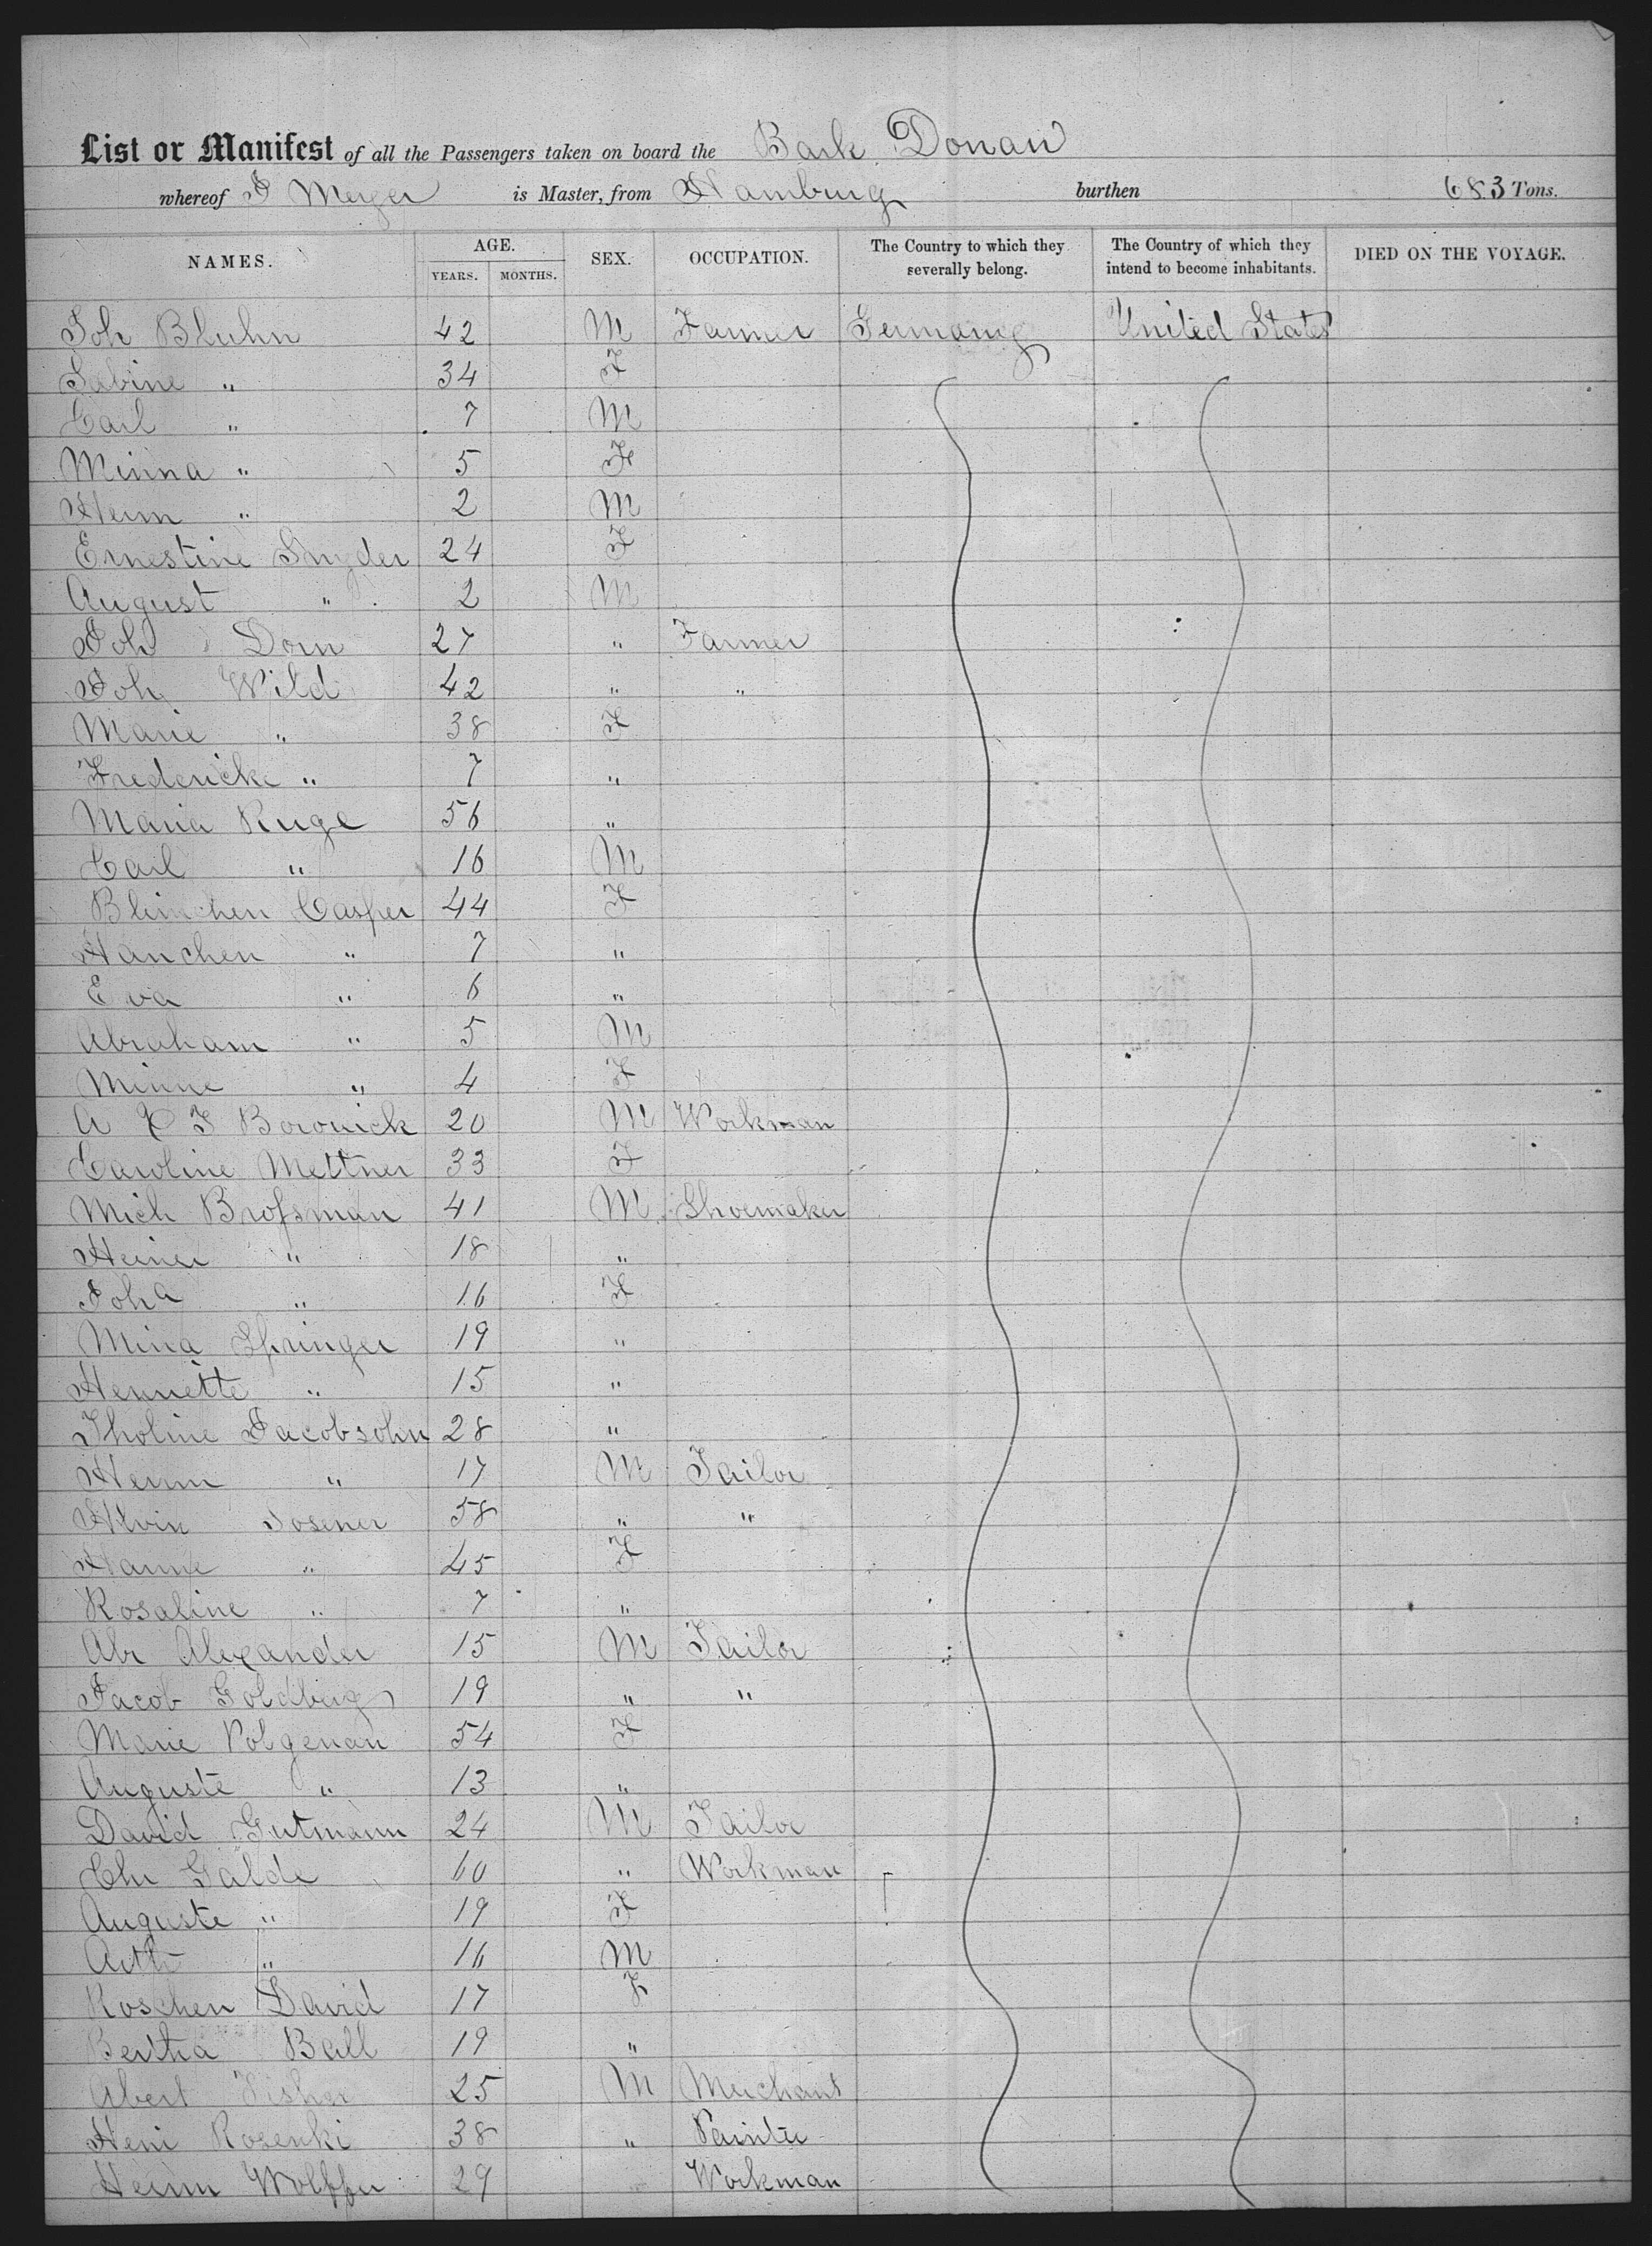 List or Manifest of all the Passengers taken on board the Bark Donau
whereof J Meyer is Master, from Hamburg burthen 683 Tons.
NAMES. AGE. SEX. OCCUPATION. The Country to which they severally belong. The Country of which they intend to become inhabitants. DIED ON THE VOYAGE.
YEARS. MONTHS.
Joh Bluhn 42 M Farmer Germany United States
Sabine " 34 F
Carl " 7 M
Minna " 5 F
Herm " 2 M
Ernestine Snyder 24 F
August " 2 M
Joh Dorn 27 " Farmer
Joh Wild 42 " "
Marie " 38 F
Fredericke " 7 "
Maria Ruge 56 "
Carl " 16 M
Blimchen Casper 44 F
Hanchen " 7 "
Eva " 6 "
Abraham " 5 M
Minne " 4 F
A C F Borowick 20 M Workman
Caroline Mettner 33 F
Mich Brossman 41 M Shoemaker
Heiner " 18 "
Joha " 16 F
Mina Springer 19 "
Hennette " 15 "
Tholine Jacobsohn 28 "
Herm " 17 M Tailor
Alvin Josener 58 " "
Hanne " 45 F
Rosaline " 7 "
Abr Alexander 15 M Tailor
Jacob Goldberg 19 " "
Marie Polgenan 54 F
Auguste " 13 "
David Gutmann 24 M Tailor
Chr Galde 60 " Workman
Auguste " 19 F
Arth " 16 M
Roschen David 17 F
Bertha Ball 19 "
Abert Fisher 25 M Merchant
Heni Rosenki 38 " Painter
Herm Wolffer 29 Workman